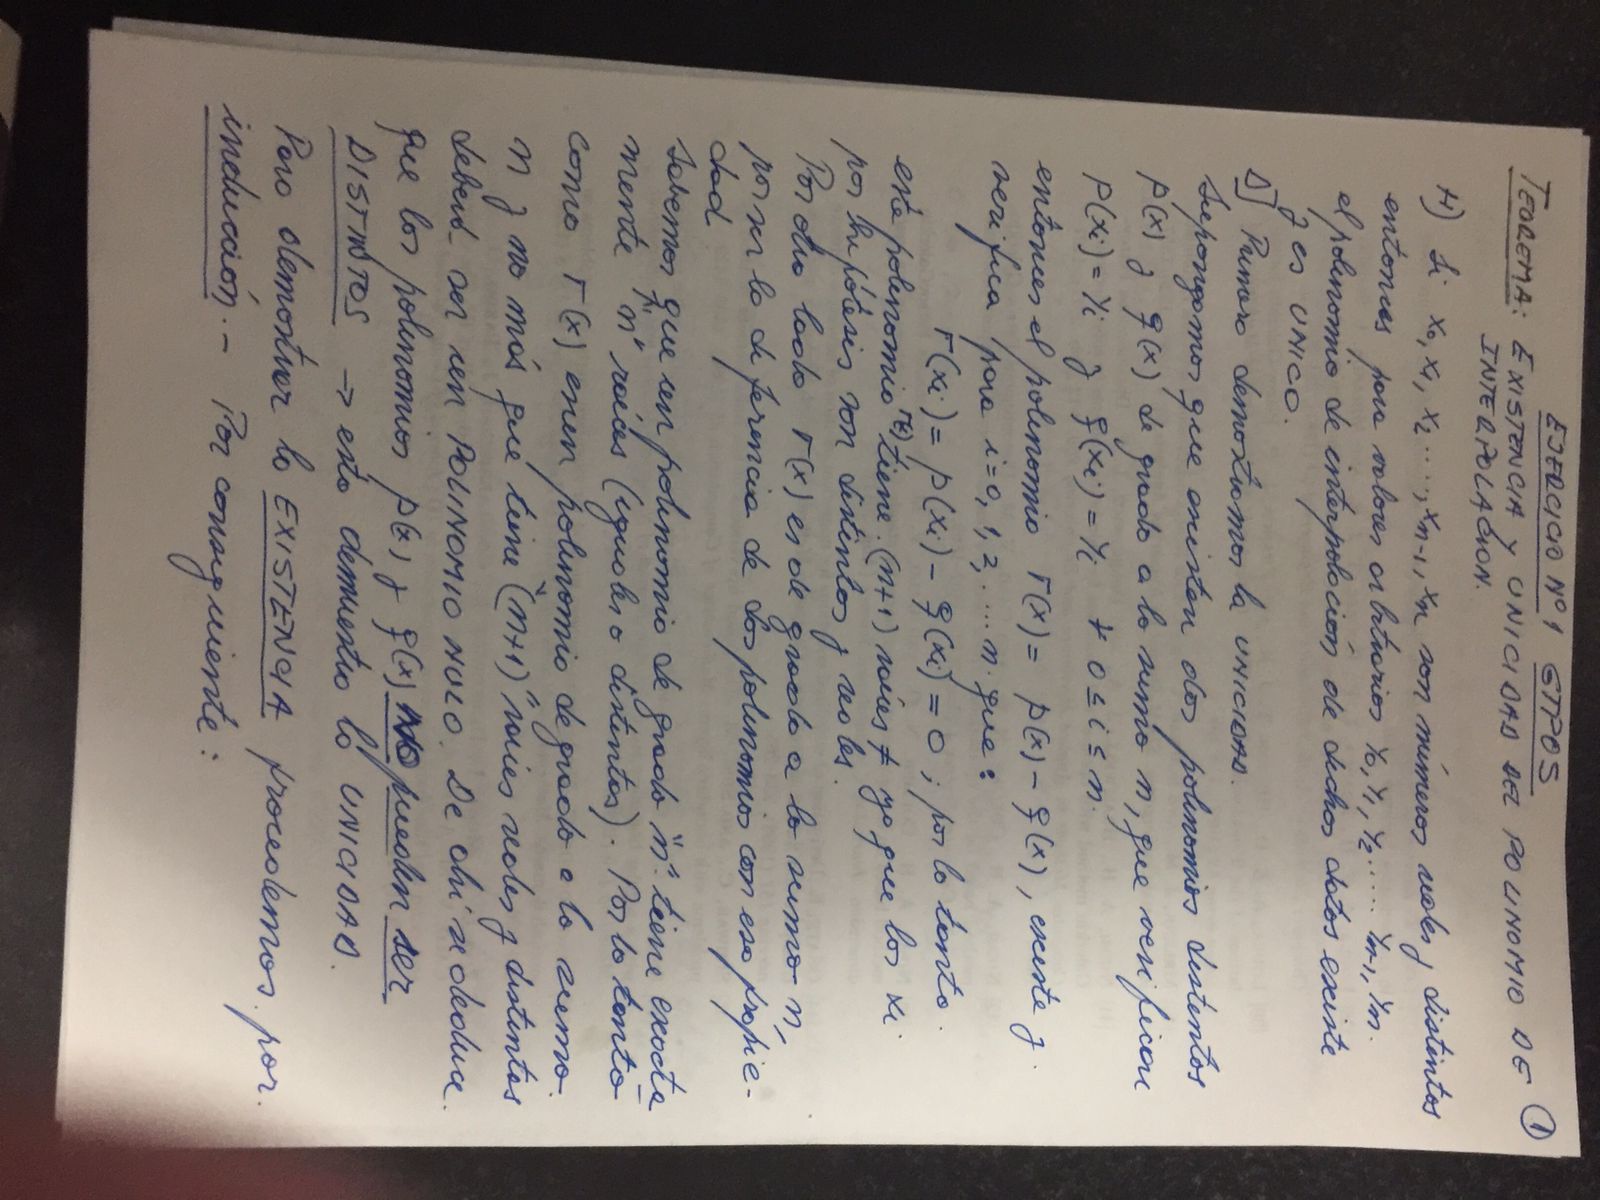 EJERCICIO Nº 1 GTPOS
1
TEOREMA: EXISTENCIA y UNICIDAD DEL POLINOMIO DE
INTERPOLACION.
H) Si x0, x1, x2 ...., xn-1, xn son números reales y distintos
entonces para valores arbitrarios y0, y1, y2 ..... yn-1, yn.
el polinomio de interpolación de dichos datos existe
y es UNICO.
D] Primero demostramos la UNICIDAD.
Supongamos que existen dos polinomios distintos
p(x) y q(x) de grado a lo sumo n, que verifican
p(xi) = yi y q(xi) = yi ∀ 0 ≤ i ≤ n.
entonces el polinomio r(x) = p(x) - q(x), existe y
verifica para i=0, 1, 2, .... n. que:
r(xi) = p(xi) - q(xi) = 0 ; por lo tanto.
este polinomio r(x) tiene (n+1) raíces ≠ ya que los xi
por hipótesis son distintos y reales.
Por otro lado r(x) es de grado a lo sumo n,
por ser la diferencia de dos polinomios con esa propie-
dad
Sabemos que un polinomio de grado "n" tiene exacta
mente "n" raíces (iguales o distintas). Por lo tanto
como r(x) es un polinomio de grado a lo sumo.
n y no más que tiene "(n+1)" raíces reales y distintas
deberá ser un POLINOMIO NULO. De ahí se deduce.
que los polinomios p(x) y q(x) NO pueden ser
DISTINTOS → esto demuestra la UNICIDAD.
Para demostrar la EXISTENCIA procedemos por.
inducción. - Por consiguiente: